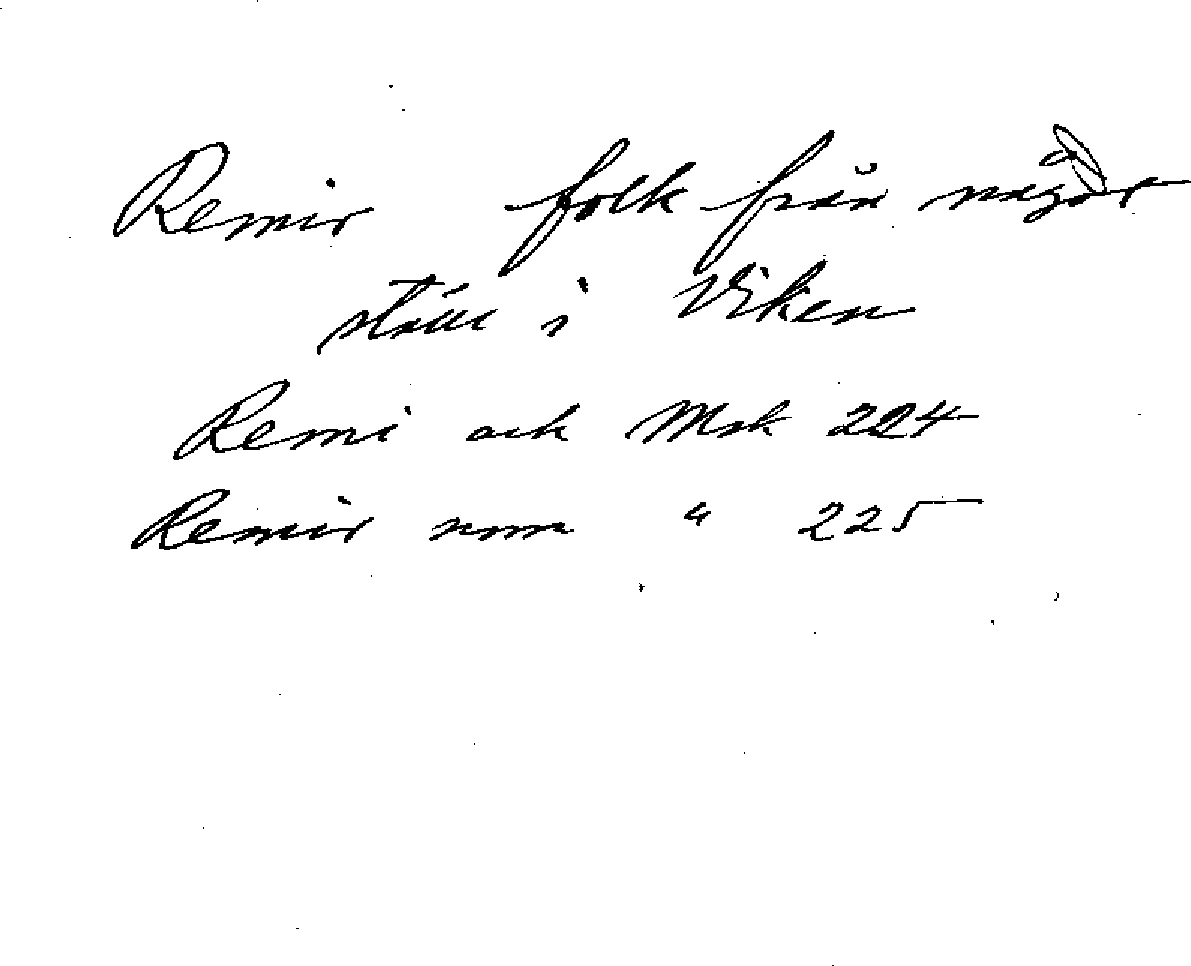 Remir folk från någor
ställ i Viken
Remi ack Msk 224
Remir nom " 225